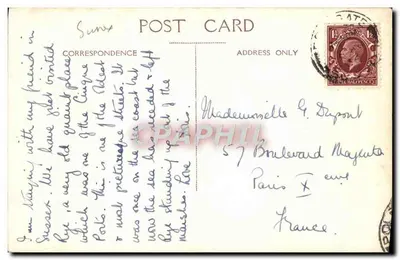 Sussex
POST CARD
CORRESPONDENCE
ADDRESS ONLY
I am staying with my friend in
Sussex. We have just visited
Rye, a very old quaint place
which was one of the Cinque
Ports. This is one of the oldest
& most picturesque streets. It
was once on the sea coast but
now the sea has receded & left
Rye standing in front of the
marshes. Love
Mademoiselle G. Dupont
57 Boulevard Magenta
Paris X eme
France.